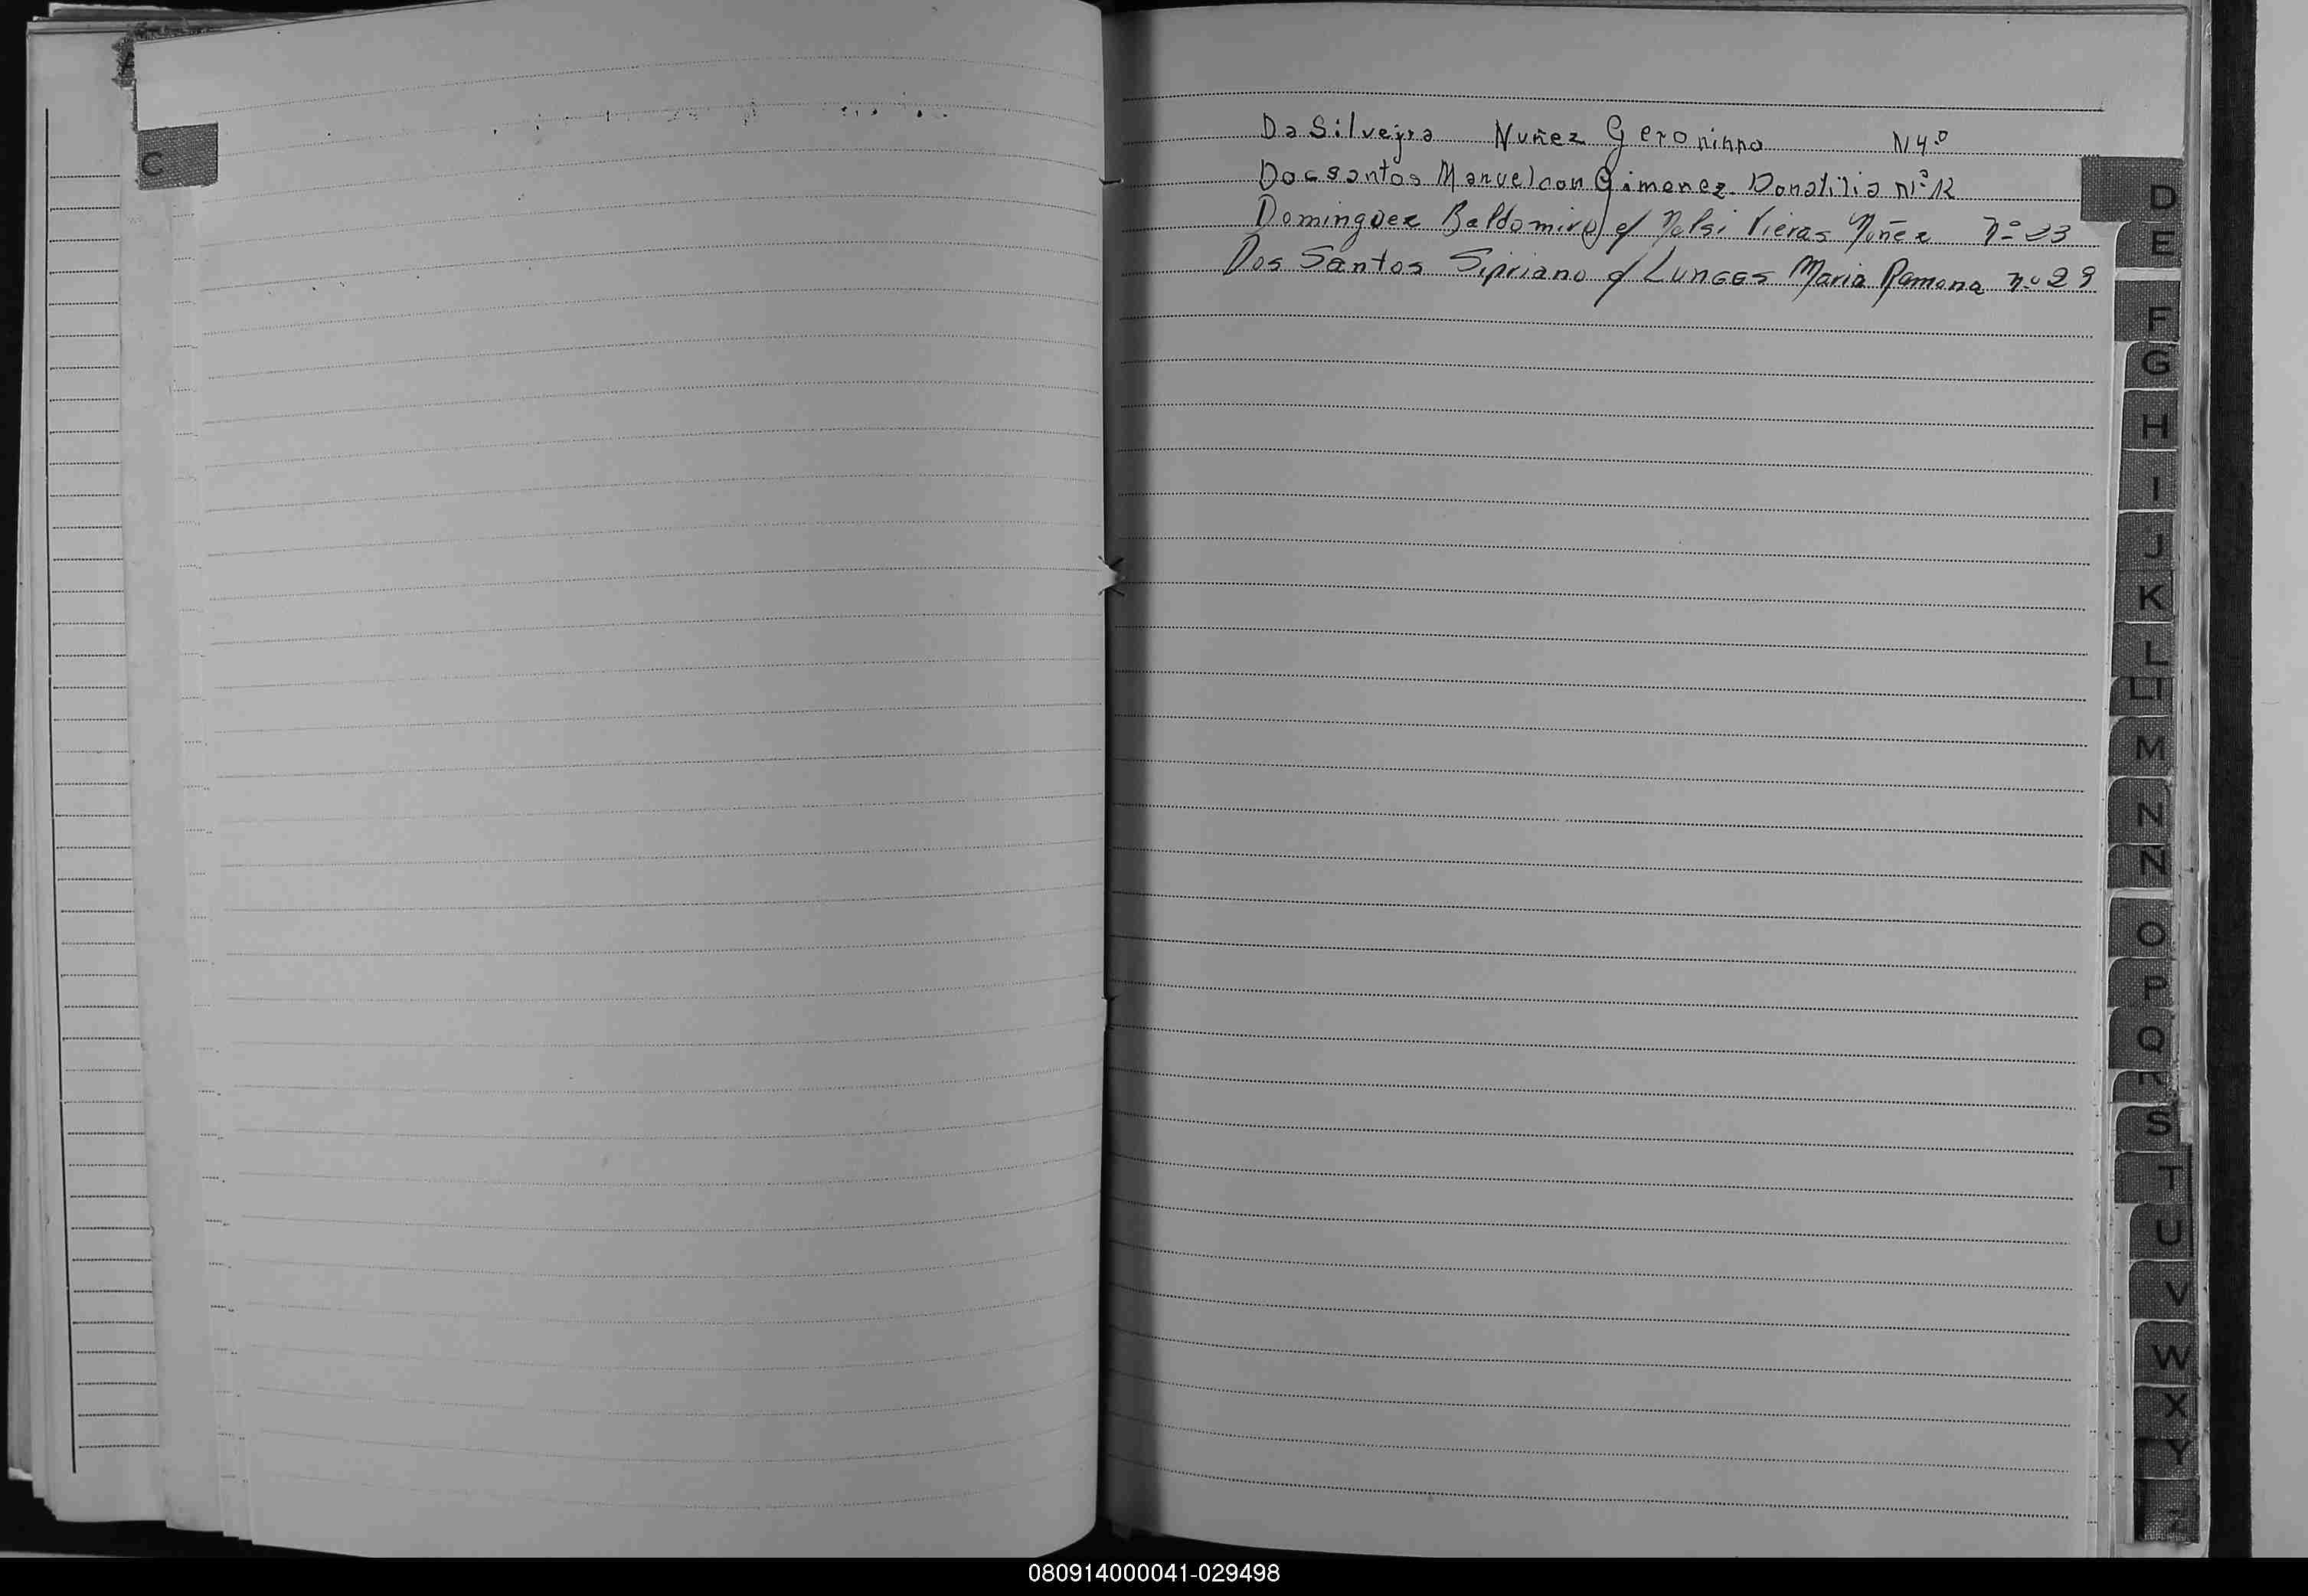 C
Da Silveira Nuñez Geronimo N4º
Docsantos Manuel con Gimenez Donatilia Nº 12
Dominguez Baldomiro c/ Nelsi Vieras Nuñez nº 23
Dos Santos Sipriano c/ Lunges Maria Ramona nº 29
D
E
F
G
H
I
J
K
L
Ll
M
N
Ñ
O
P
Q
R
S
T
U
V
W
X
Y
Z
080914000041-029498